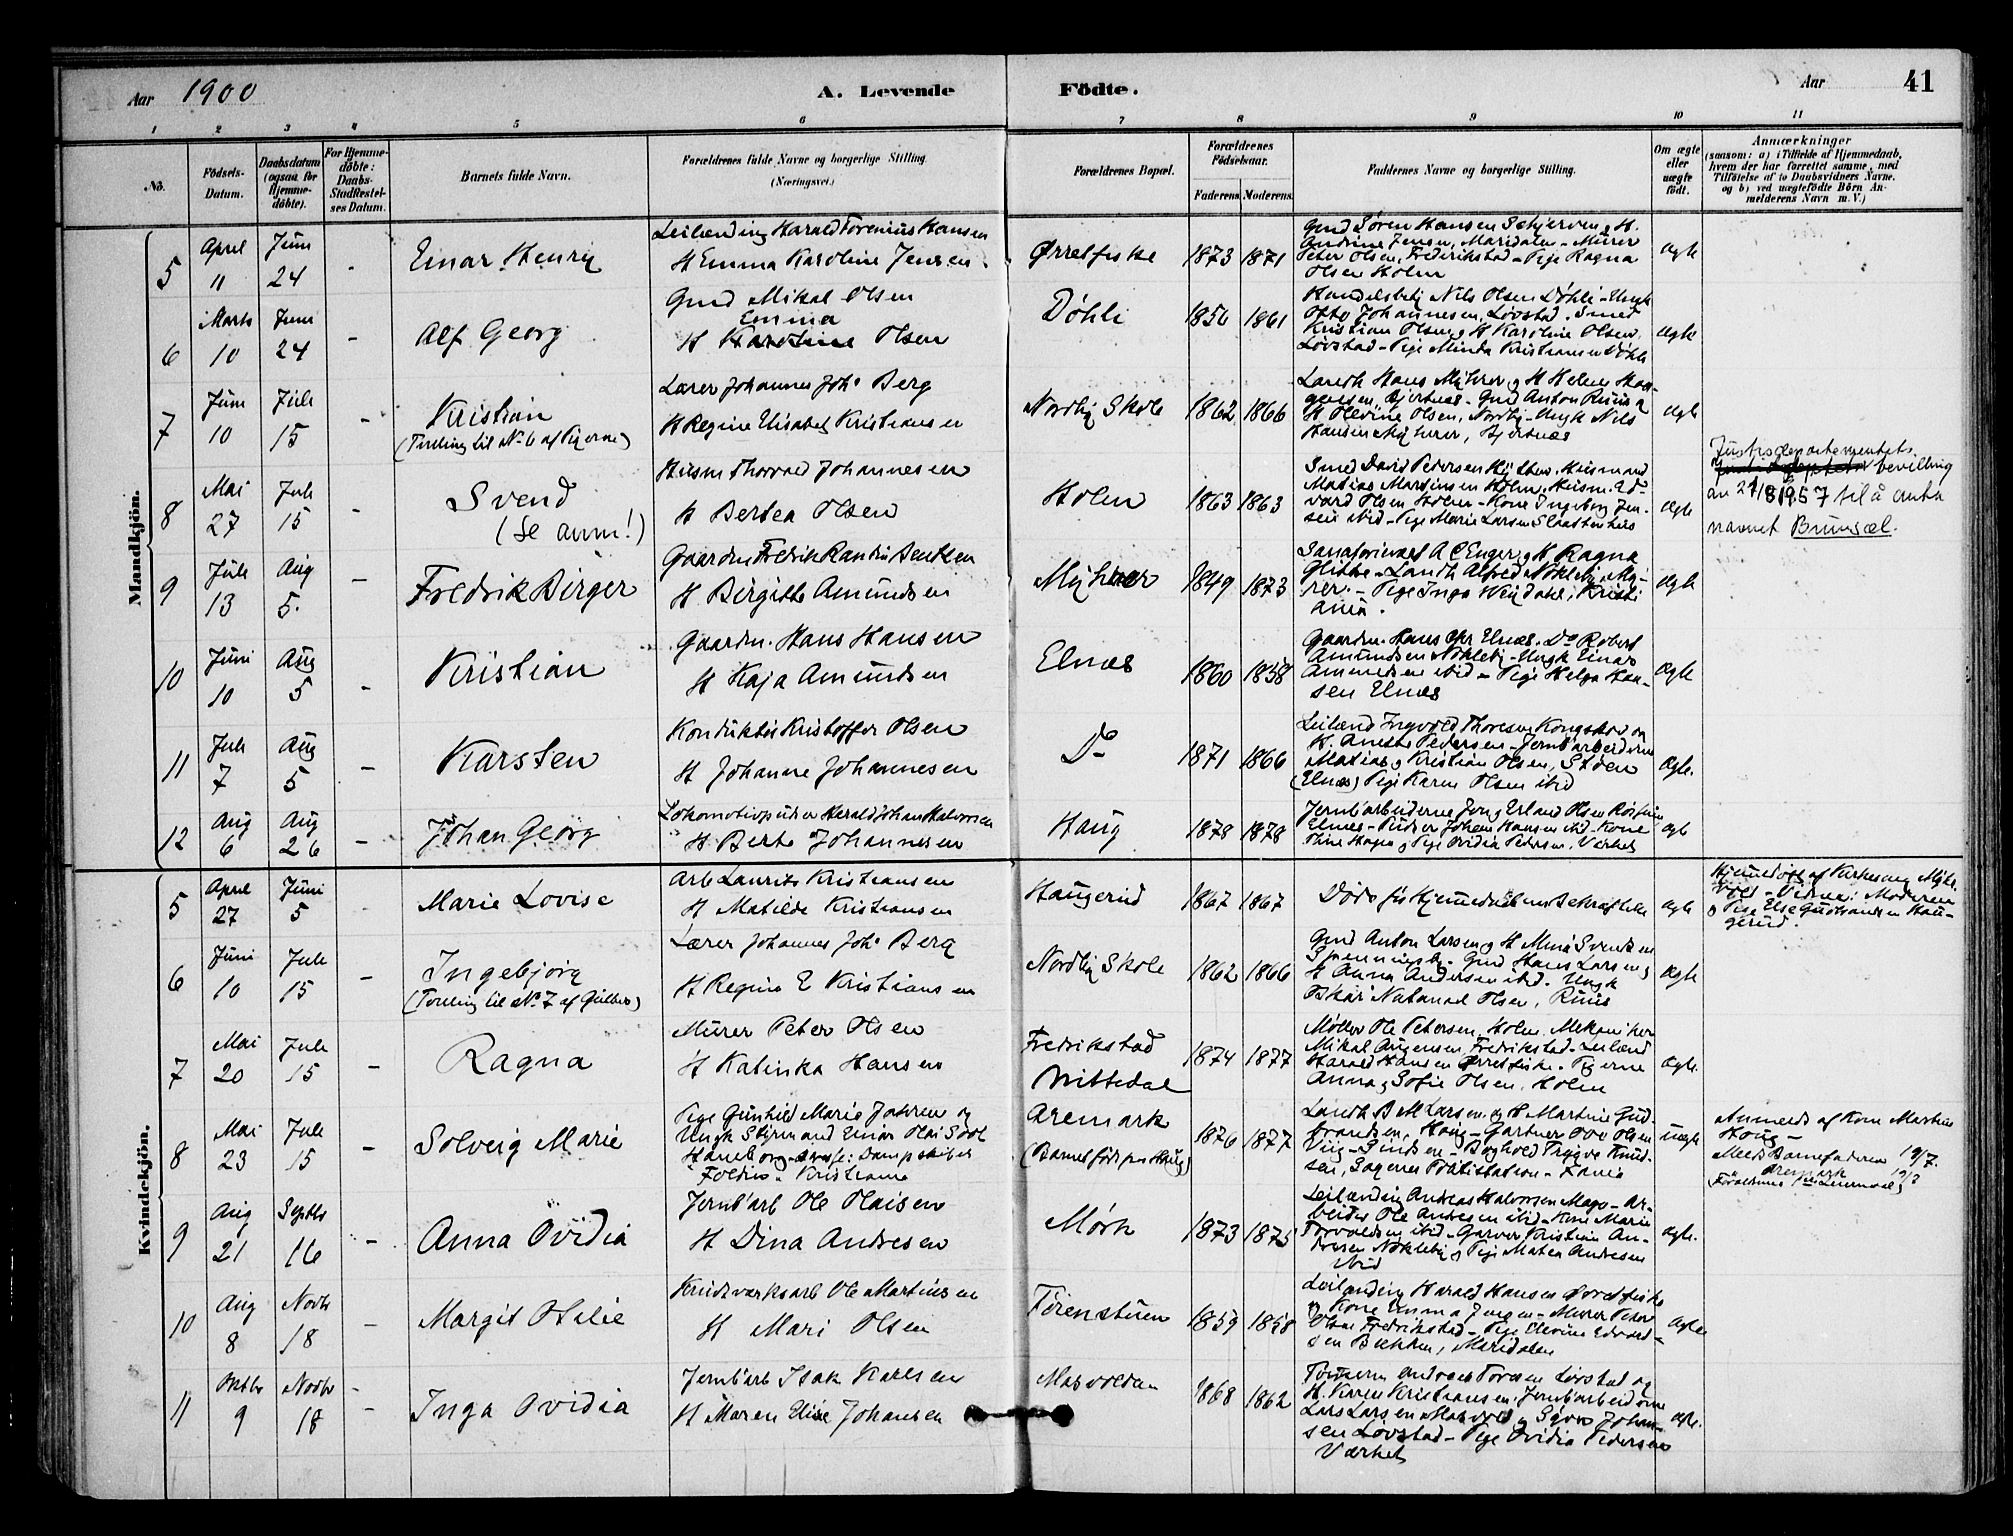 Aar 1900
A. Levende Födte.
Aar
41
1 2 3 4 5 6 7 8 9 10 11
No.
Födsels-
Datum.
Daabsdatum
(ogsaa for
Hjemme-
döbte).
For Hjemme-
döbte:
Daabs-
Stadfæstel-
ses Datum.
Barnets fulde Navn.
Forældrenes fulde Navne og borgerlige Stilling.
(Næringsvei.)
Forældrenes Bopæl.
Forældrenes
Födselsaar.
Faderens. Moderens.
Faddernes Navne og borgerlige Stilling.
Om ægte
eller
uægte
födt.
Anmærkninger
(saasom: a) i Tilfælde af Hjemmedaab,
hvem der har forrettet samme, med
Tilföielse af to Daabsvidners Navne.
og b) ved uægtefödte Börn An-
melderens Navn m. V.)
Mandkjön.
5
April
11
Juni
24
-
Einar Henry
Leilænding Harald Torenius Hansen
H Emma Karoline Jensen
Ørretfiske
1873 1871
Gmd Søren Hansen Schjerven & H.
Andrine Jensen, Maridalen - Murer
Peter Olsen, Fredrikstad - Pige Ragna
Olsen Holm
ægte
6
Marts
10
Juni
24
-
Alf Georg
Gmd Mikal Olsen
Emma
H Karoline Olsen
Døhli
1850 1861
Handelsbetj Nils Olsen Døhli - Ungk
Otto Johannesen, Løvstad. Smed
Kristian Olsen & H Karoline Olsen,
Løvstad - Pige Minda Kristiansen Døhli
ægte
7
Juni
10
Juli
15
-
Kristian
(Tvilling til No 6 af Pigerne)
Lærer Johannes Johs Berg
H Regine Elisabeth Kristiansen
Nordby Skole
1862 1866
Landh Hans Myhrer & H Helene Haa-
gensen, Bjertnæs - Gmd Anton Ruus &
H Olevine Olsen, Nordby - Ungk Nils
Hansen Myhrer, Bjertnæs
ægte
8
Mai
27
Juli
15
Svend
(Se anm!)
Husm Thorvald Johannesen
H Bertea Olsen
Holm
1863 1863
Smed David Pedersen Hytten. Husmand
Matias Martinsen Holm. Husm. Ed-
vard Olsen Holm - Kone Ingeborg Jen-
sen ibid - Pige Marie Larsen
ægte
Justisdepartementets
bevilling
av 21/8 1957 til å anta
navnet Brunsæl.
9
Juli
13
Aug
5.
-
Fredrik Birger
Gaardm Fredrik Randin Bentsen
H. Birgitte Amundsen
Myhrer
1849 1873
A C Enger & H Ragna
Glitre - Landh Alfred Nøkleby, My-
rer. - Pige Inga, Kristi
ania.
ægte
10
Juni
10
Aug
5
-
Kristian
Gaardm. Hans Hansen
H Kaja Amundsen
Elnæs
1860 1858
Gaardm. Hans Chr Elnæs. Do Robert
Amundsen Nøkleby - Ungk Einar
Amundsen ibid - Pige Helga Han-
sen Elnæs
ægte
11
Juli
7
Aug
5
-
Karsten
Konduktør Kristoffer Olsen
H Johanne Johannesen
Do
1871 1866
Leilænd Ingvald Thoresen Kongskog og
H. Anette Pedersen - Jernbarbeiderne
Matias & Kristian Olsen, Støen
(Elnæs) Pige Karen Olsen ibid
ægte.
12
Aug
6
Aug
26
-
Johan Georg
Lokomotivpudser Harald Johan Halvorsen
H Berte Johannesen
Haug
1878 1878
Jernbarbeiderne Jon & Erland Olsen
Elnæs - Pudser Johan Hansen ibid - Kone
Thine Hagen & Pige Ovidia Pedersen, Værket
ægte
Kvindekjön.
5
April
27
Juni
5
-
Marie Lovise
Arb Laurits Kristiansen
H Matilde Kristiansen
Haugerud
1867 1867
Døde før Hjemmedaabens Bekræftelse
ægte
Hjemmedøbt af Kirkesang Myhr-
vold - Vidner: Moderen
& Pige Else Gudbrandsen Hau-
gerud.
6
Juni
10
Juli
15
-
Ingebjørg
(Tvilling til No 7 af Gutterne)
Lærer Johannes Johs Berg
H Regine E Kristiansen
Nordby Skole
1862 1866
Gmd Anton Larsen & H Mina Svendsen
- Gmd Hans Larsen &
H Anna Andersen ibid. Ungk
Oskar Natanael Olsen, Ruus
ægte
7
Mai
20
Juli
15
-
Ragna
Murer Peter Olsen
H Katinka Hansen
Fredrikstad
Nittedal
1874 1877
Møller Ole Petersen, Holm. Mekaniker
Mikal Augensen, Fredrikstad - Leilænd
Harald Hansen Ørretfiske. Pigerne
Anna & Sofie Olsen, Holm
ægte.
8
Mai
23
Juli
15
-
Solveig Marie
Pige Gunhild Marie Johnsen og
Ungk Styrmand Einar Olai
- Adresse: Dampskibet
Foldin - Kristiania
Aremark
(Barnet født paa Haug)
1876 1877
Landh B M Larsen og H Martine Gud-
brandsen, Haug - Gartner Ove Olsen
- Boghold Trygve Knud-
sen, Sagenes Politistation -
uægte
Anmeldt af Kone Martine
Haug -
Meldt Barnefaderen 19/7.
Aremark
9
Aug
21
Septbr
16
-
Anna Ovidia
Jernb'arb Ole Olaisen
H Dina Andresen
Mørk
1873 1875
Leilænding Andreas Halvorsen Mago - Ar-
beider Ole Andresen ibid - Kone Marie
Torvaldsen ibid - Garver Kristian An-
dresen Nøkleby & Pige Matea Andresen
ibid
ægte.
10
Aug
8
Novbr
18
-
Margit Otilie
Krudtværksarb Ole Martinsen
H Mari Olsen
Tørenstuen
1859 1858
Leilænding Harald Hansen Ørretfiske
& Kone Emma Jensen - Murer Peter
Olsen Fredrikstad - Pige Olevine Edvard-
sen Bakken, Maridalen
ægte
11
Oktbr
9
Novbr
18
-
Inga Ovidia
Jernb'arb Isak Karlsen
H Maren Elise Johansen
Masvolden
1868 1862
Tømmerm Andreas Toresen Løvstad og
H. Karen Kristiansen. Jernb'arbeiderne
Lars Larsen Masvold & Johan-
sen Løvstad - Pige Ovidia Pedersen
Værket
ægte.